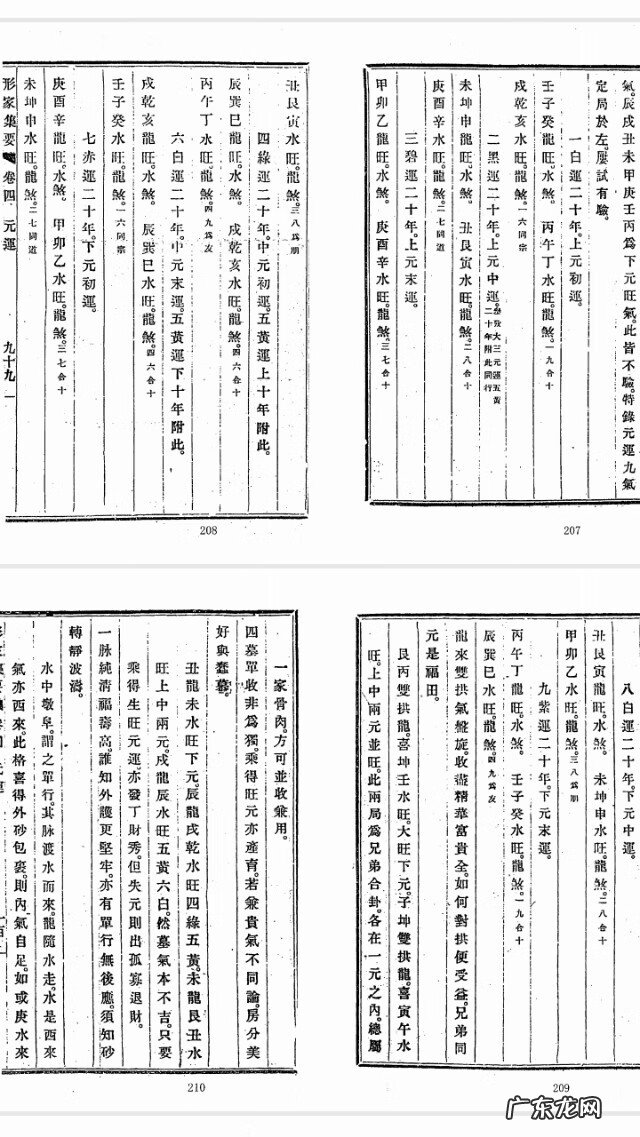 氣。辰戌丑未甲庚壬丙爲下元旺氣。此皆不驗。特錄元運九氣
定局於左。屢試有驗。
一白運二十年。上元初運。
壬子癸龍旺。水煞。 丙午丁水旺。龍煞。一九合十
戌乾亥水旺。龍煞。一六同宗
二黑運二十年。上元中運。
二十年附此同行
未坤申龍旺。水煞。 丑艮寅水旺。龍煞。二八合十
庚酉辛水旺。龍煞。二七同道
三碧運二十年。上元末運。
甲卯乙龍旺。水煞。 庚酉辛水旺。龍煞。三七合十
207
丑艮寅水旺。龍煞。三八爲朋
四綠運二十年。中元初運。五黃運上十年附此。
辰巽巳龍旺。水煞。 戌乾亥水旺。龍煞。四六合十
丙午丁水旺。龍煞。四九爲友
六白運二十年。中元末運。五黃運下十年附此。
戌乾亥龍旺。水煞。 辰巽巳水旺。龍煞。四六合十
壬子癸水旺。龍煞。一六同宗
七赤運二十年。下元初運。
庚酉辛龍旺。水煞。 甲卯乙水旺。龍煞。三七合十
未坤申水旺。龍煞。二七同道
形家集要 卷四 元運 九十九
208
八白運二十年。下元中運。
丑艮寅龍旺。水煞。 未坤申水旺。龍煞。二八合十
甲卯乙水旺。龍煞。三八爲朋
九紫運二十年。下元末運。
丙午丁龍旺。水煞。 壬子癸水旺。龍煞。一九合十
辰巽巳水旺。龍煞。四九爲友
龍來雙拱氣盤旋。收盡精華富貴全。如何對拱便受益。兄弟同
元是福田。
艮丙雙拱龍。喜坤壬水旺。大旺下元。子坤雙拱龍。喜寅午水
旺。上中兩元並旺。此兩局爲兄弟合卦。各在一元之內。總屬
209
一家骨肉。方可並收兼用。
四墓單收非爲獨。乘得旺元亦產育。若兼貴氣不同論。房分美
好與蠢暮。
丑龍未水旺下元。辰龍戌乾水旺四綠五黃。未龍艮丑水
旺上中兩元。戌龍辰水旺五黃六白。然墓氣本不吉。只要
乘得生旺元運亦發丁財秀。但失元則出孤寡退財。
一脉純淸福壽高。誰知外護更堅牢。亦有單行無後應。須知砂
轉靜波濤。
水中墩阜。謂之單行。其脉渡水而來。龍隨水走。水是西來
氣亦西來。此格喜得外砂包裹。則內氣自足。如或庚水來
210
广东龙网